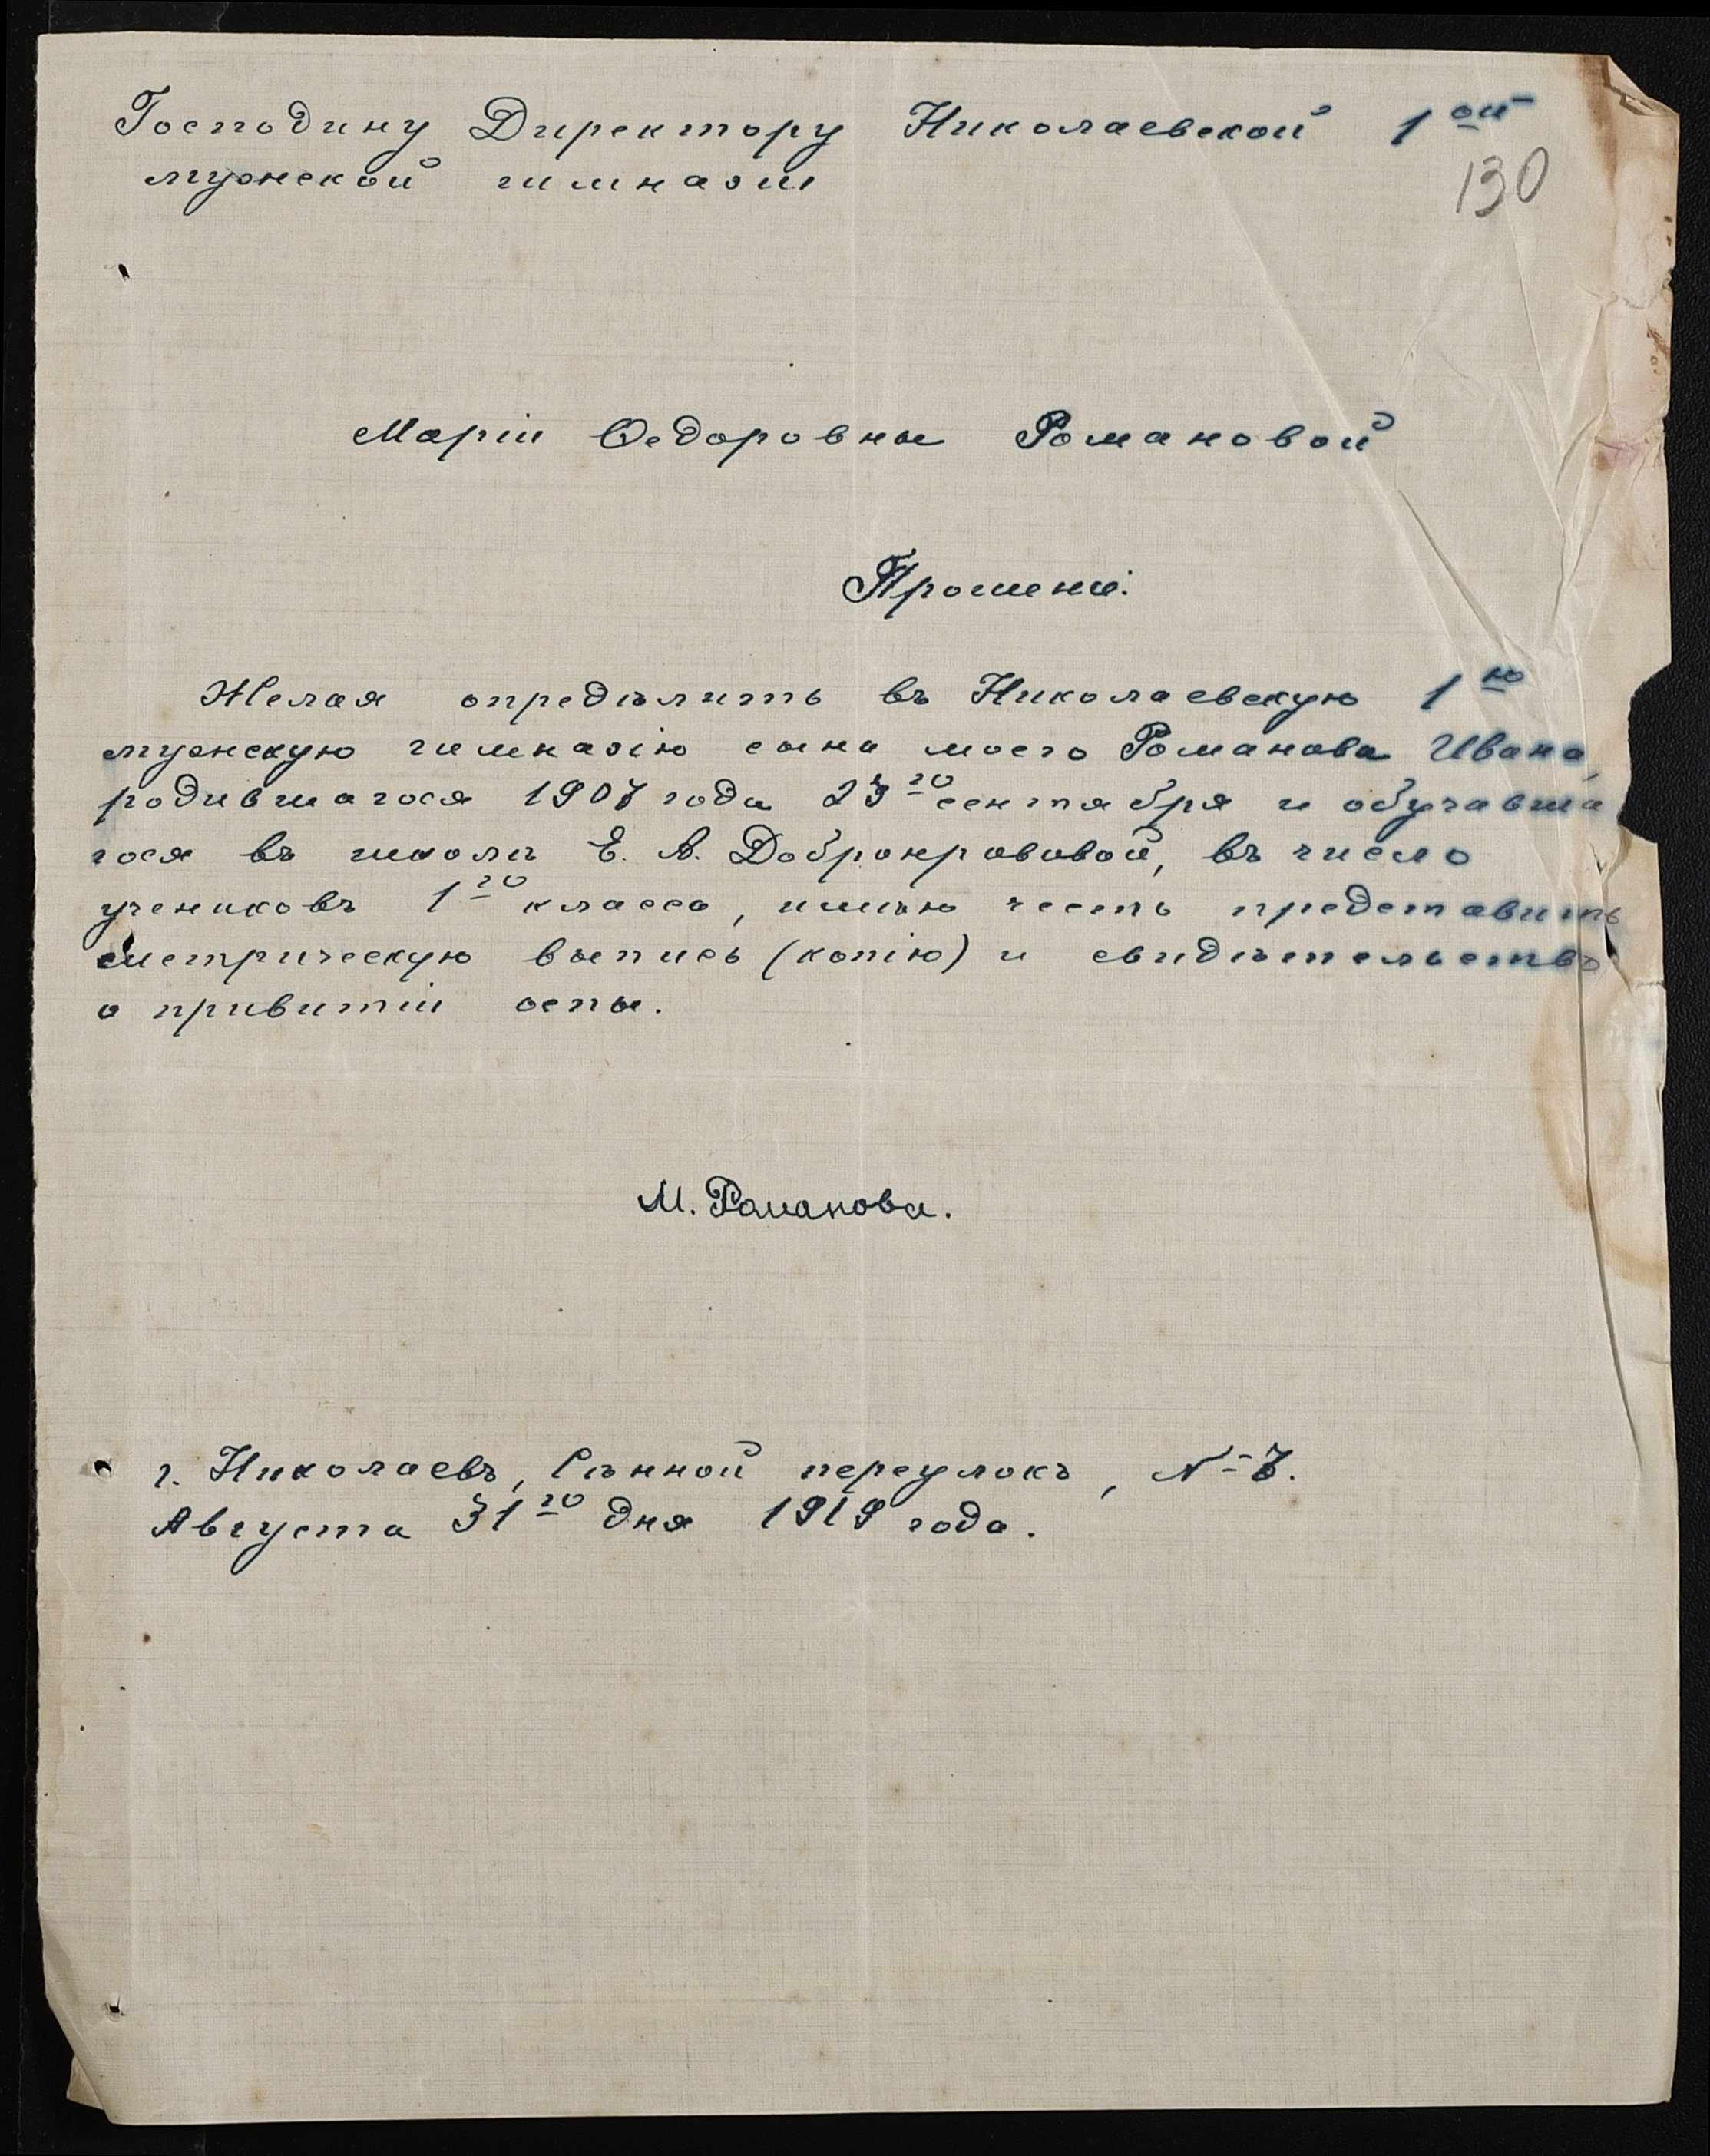 Господину Директору Николаевской 1ой
130
мужской гимназіи
Маріи Ѳедоровны Романовой
Прошеніе.
Желая опредѣлить въ Николаевскую 1ю
мужскую гимназію сына моего Романова Ивана,
родившагося 1907 года 23го сентября и обучавша
гося въ школѣ Е. А. Добронравовой, въ число
учениковъ 1го класса, имѣю честь представить
метрическую выпись (копію) и свидѣтельство
о привитіи оспы.
М. Романова.
г. Николаевъ, Сѣнной переулокъ, №7.
Августа 31го дня 1919 года.